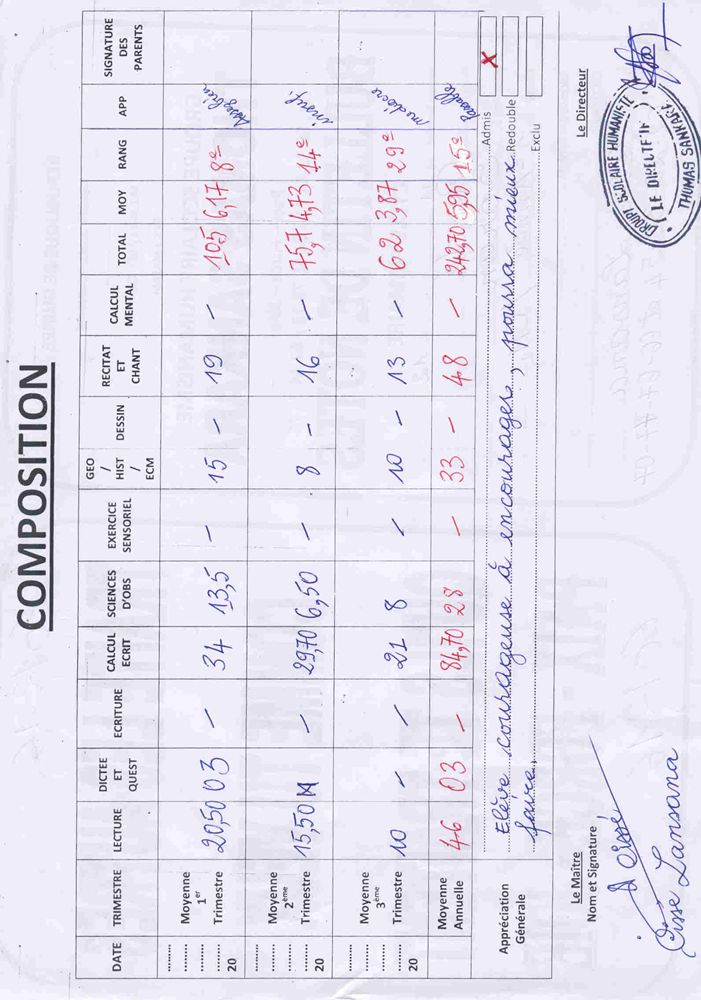 COMPOSITION
DATE TRIMESTRE LECTURE DICTEE ET QUEST ECRITURE CALCUL ECRIT SCIENCES D'OBS EXERCICE SENSORIEL GEO / HIST / ECM DESSIN RECITAT ET CHANT CALCUL MENTAL TOTAL MOY RANG APP SIGNATURE DES PARENTS
.......... .......... 20 Moyenne 1er Trimestre 20,50 03 – 34 13,5 – 15 – 19 – 105 6,17 8e Assez bien
.......... .......... 20 Moyenne 2ème Trimestre 15,50 – 29,70 6,50 – 8 – 16 – 75,7 4,73 14e insuf.
.......... .......... 20 Moyenne 3ème Trimestre 10 – – 21 8 – 10 – 13 – 62 3,87 29e mediocre
Moyenne Annuelle 46 03 – 84,70 28 – 33 – 48 – 242,70 5,05 15e Passable
Appréciation Générale
Elève courageuse à encourager, pourra mieux
faire.
Admis X
Redouble
Exclu
Le Maître
Nom et Signature
Cisse Lansana
Le Directeur
GROUPE SCOLAIRE HUMANISTE
LE DIRECTEUR
THOMAS SANKARA